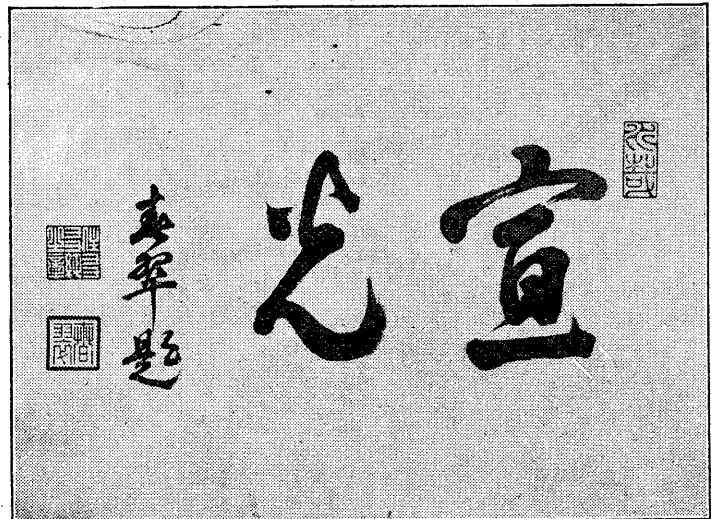 宣光
春翠題